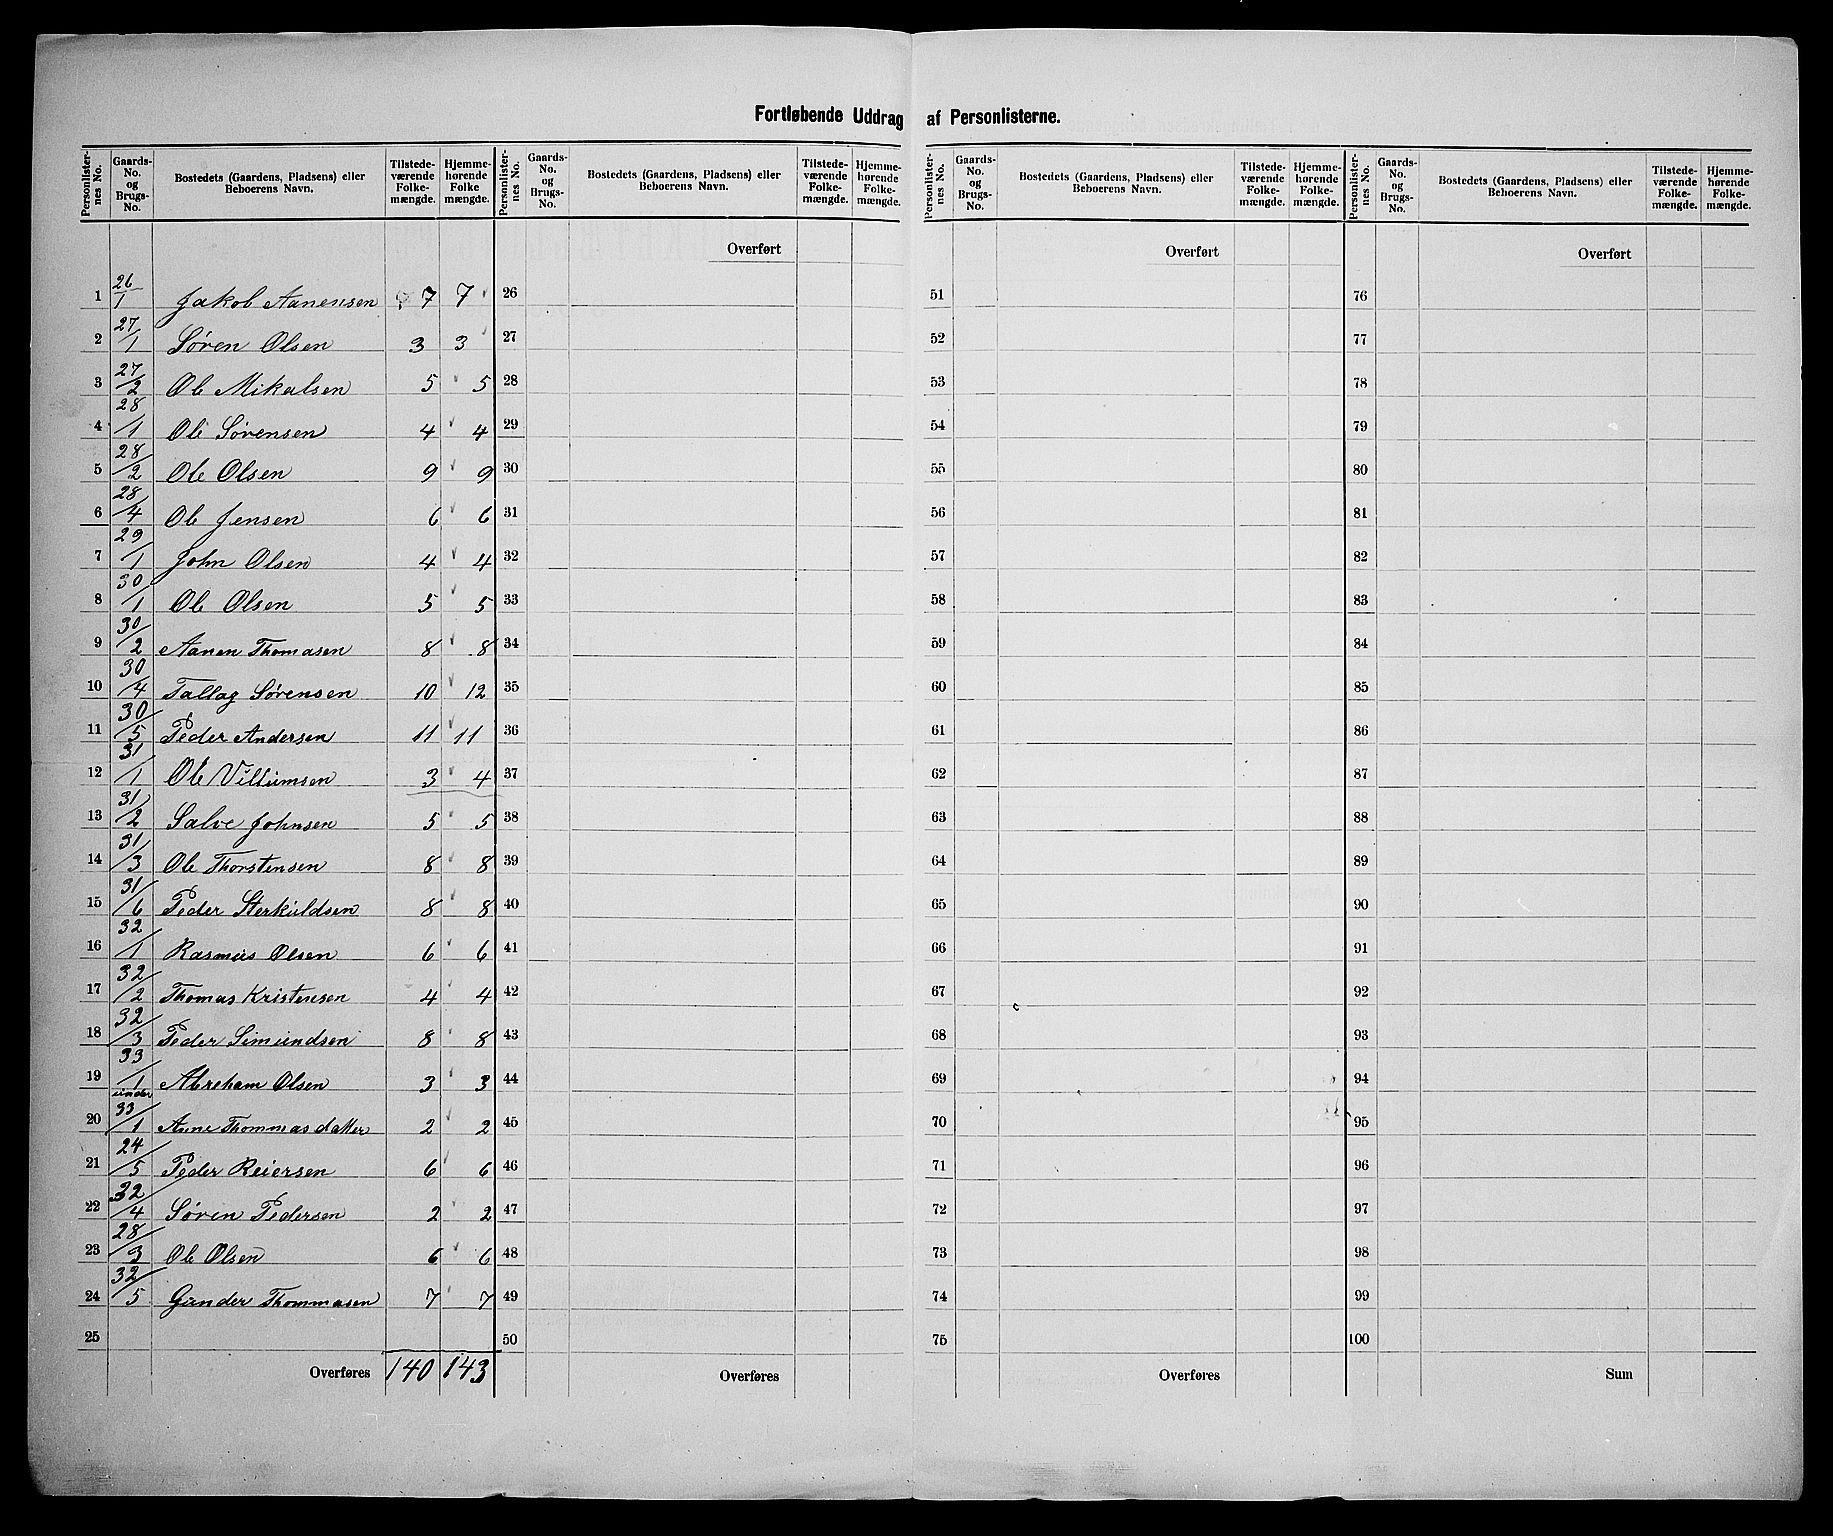 Fortløbende Uddrag af Personlisterne.
Personlisternes No. | Gaards-No. og Brugs-No. | Bostedets (Gaardens, Pladsens) eller Beboerens Navn. | Tilstedeværende Folkemængde. | Hjemmehørende Folkemængde. | Personlisternes No. | Gaards-No. og Brugs-No. | Bostedets (Gaardens, Pladsens) eller Beboerens Navn. | Tilstedeværende Folkemængde. | Hjemmehørende Folkemængde. | Personlisternes No. | Gaards-No. og Brugs-No. | Bostedets (Gaardens, Pladsens) eller Beboerens Navn. | Tilstedeværende Folkemængde. | Hjemmehørende Folkemængde. | Personlisternes No. | Gaards-No. og Brugs-No. | Bostedets (Gaardens, Pladsens) eller Beboerens Navn. | Tilstedeværende Folkemængde. | Hjemmehørende Folkemængde.
Overført Overført Overført
1 26/1 Jakob Aanensen 7 7 26 51 76
2 27/1 Søren Olsen 3 3 27 52 77
3 27/2 Ole Mikalsen 5 5 28 53 78
4 28/1 Ole Sørensen 4 4 29 54 79
5 28/2 Ole Olsen 9 9 30 55 80
6 28/4 Ole Jensen 6 6 31 56 81
7 29/1 John Olsen 4 4 32 57 82
8 30/1 Ole Olsen 5 5 33 58 83
9 30/2 Aanen Thomasen 8 8 34 59 84
10 30/4 Tallag Sørensen 10 12 35 60 85
11 30/5 Peder Andersen 11 11 36 61 86
12 31/1 Ole Villumsen 3 4 37 62 87
13 31/2 Salve Johnsen 5 5 38 63 88
14 31/3 Ole Thorstensen 8 8 39 64 89
15 31/6 Peder Sterkuldsen 8 8 40 65 90
16 32/1 Rasmus Olsen 6 6 41 66 91
17 32/2 Thomas Kristensen 4 4 42 67 92
18 32/3 Peder Simundsen 8 8 43 68 93
19 33/1 Abreham Olsen 3 3 44 69 94
20 under 33/1 Anne Thommasdatter 2 2 45 70 95
21 24/5 Peder Reiersen 6 6 46 71 96
22 32/4 Søren Pedersen 2 2 47 72 97
23 28/3 Ole Olsen 6 6 48 73 98
24 32/5 Gunder Thommasen 7 7 49 74 99
25 50 75 100
Overføres 140 143 Overføres Overføres Sum